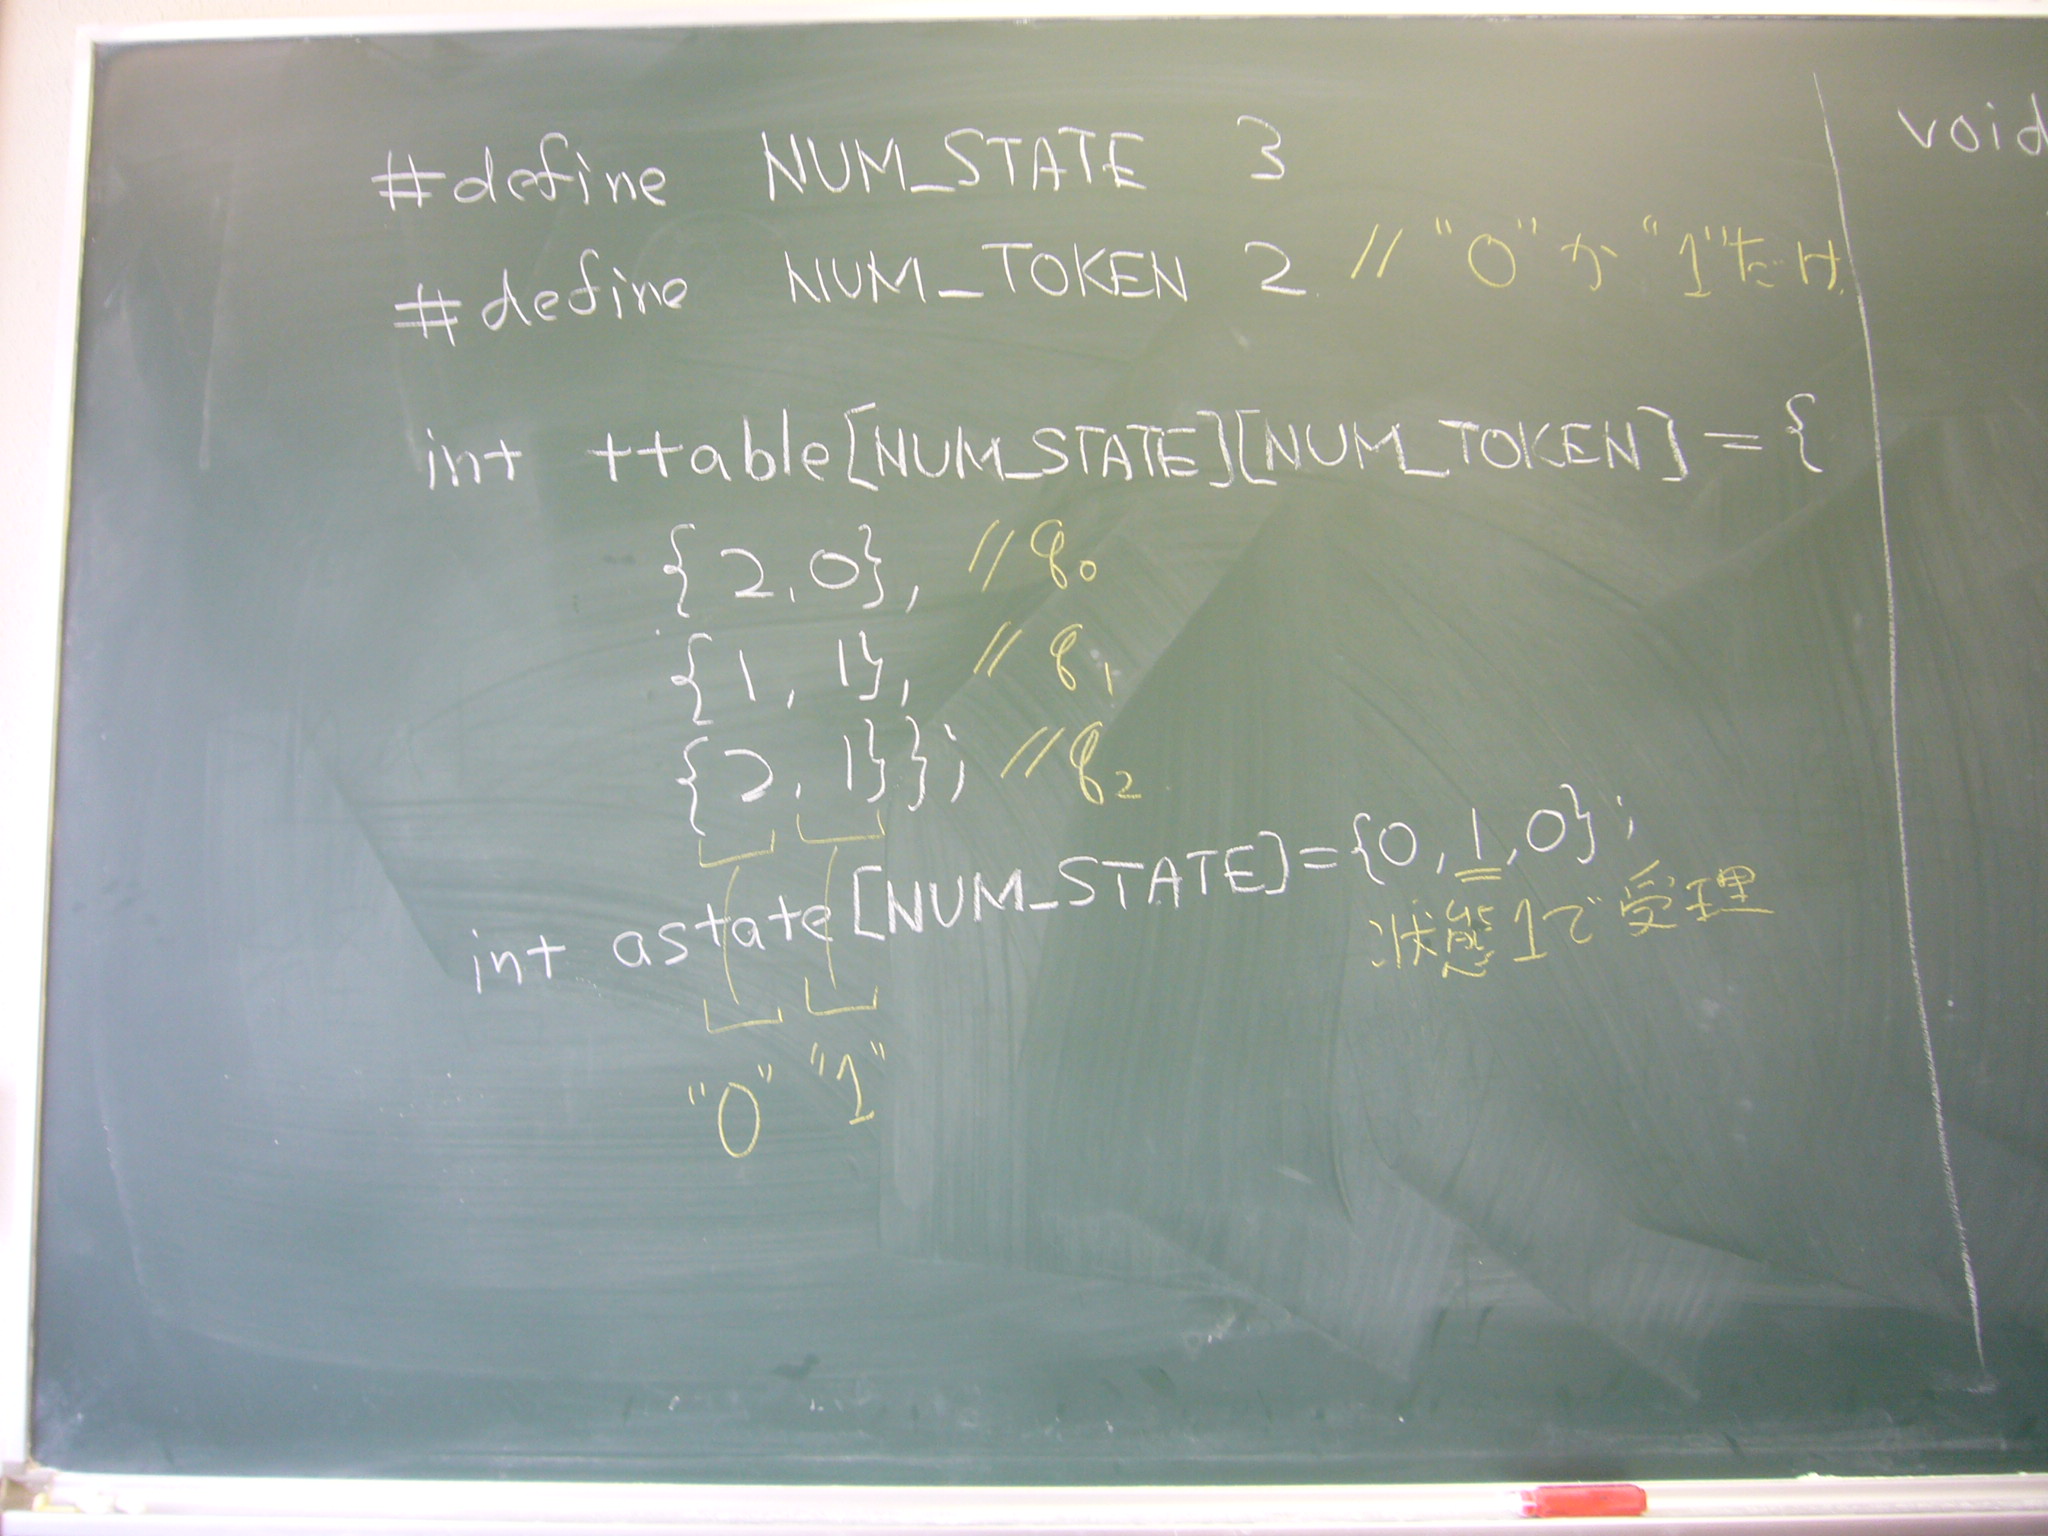 #define NUM_STATE 3
#define NUM_TOKEN 2 // "0" か "1" だけ
int ttable[NUM_STATE][NUM_TOKEN] = {
{2,0}, // q0
{1, 1}, // q1
{2, 1}}; // q2
int astate[NUM_STATE]={0,1,0};
状態1で受理
"0" "1"
void